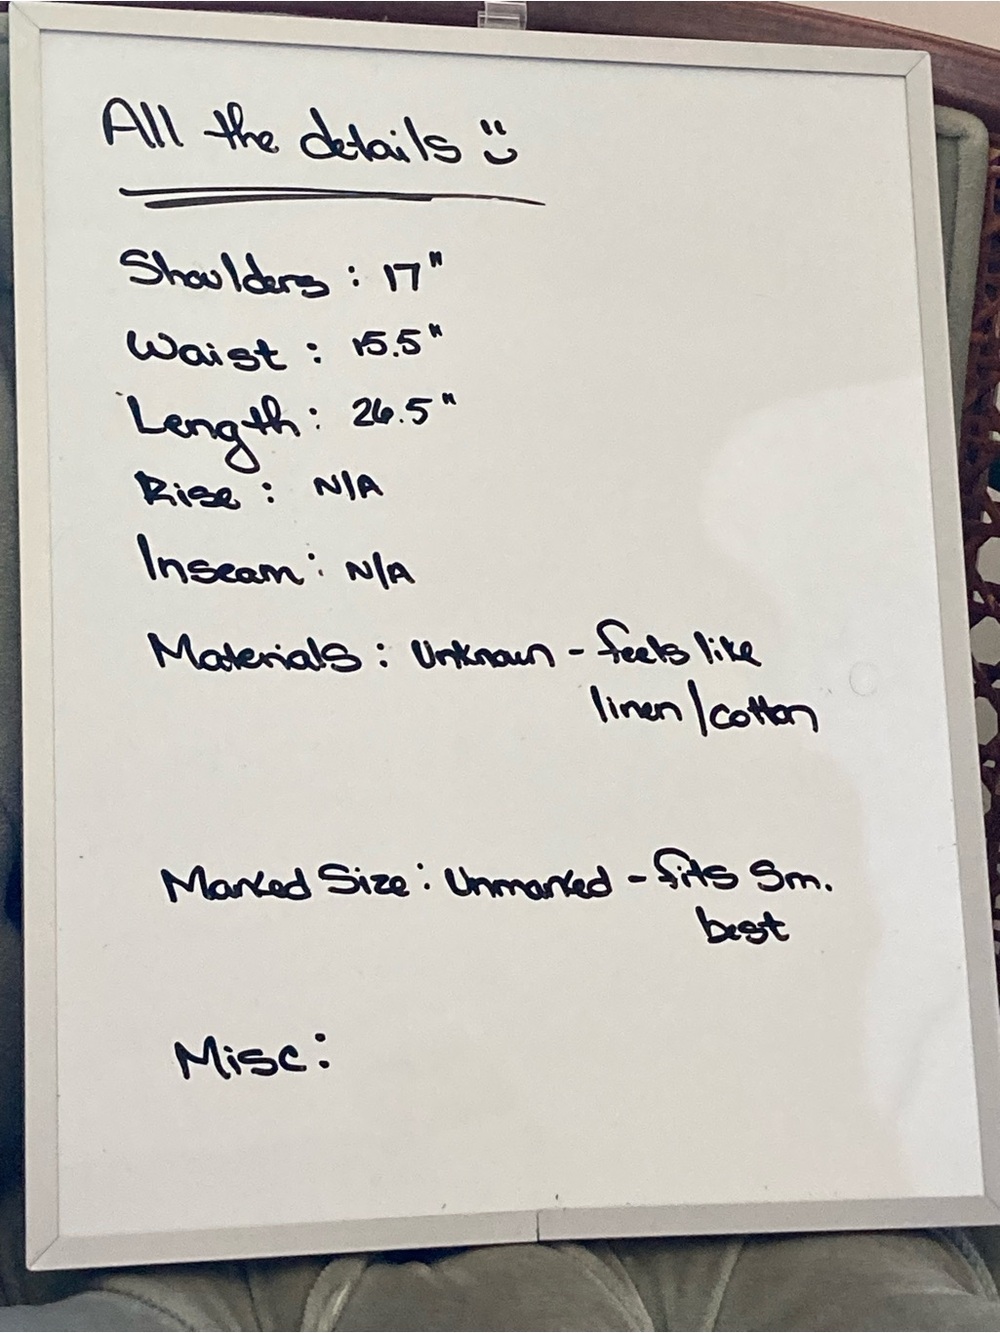 All the details
Shoulders: 17"
Waist: 15.5"
Length: 26.5"
Rise: N/A
Inseam: N/A
Materials: Unknown - feels like
linen/cotton
Marked Size: Unmarked - fits Sm.
best
Misc: